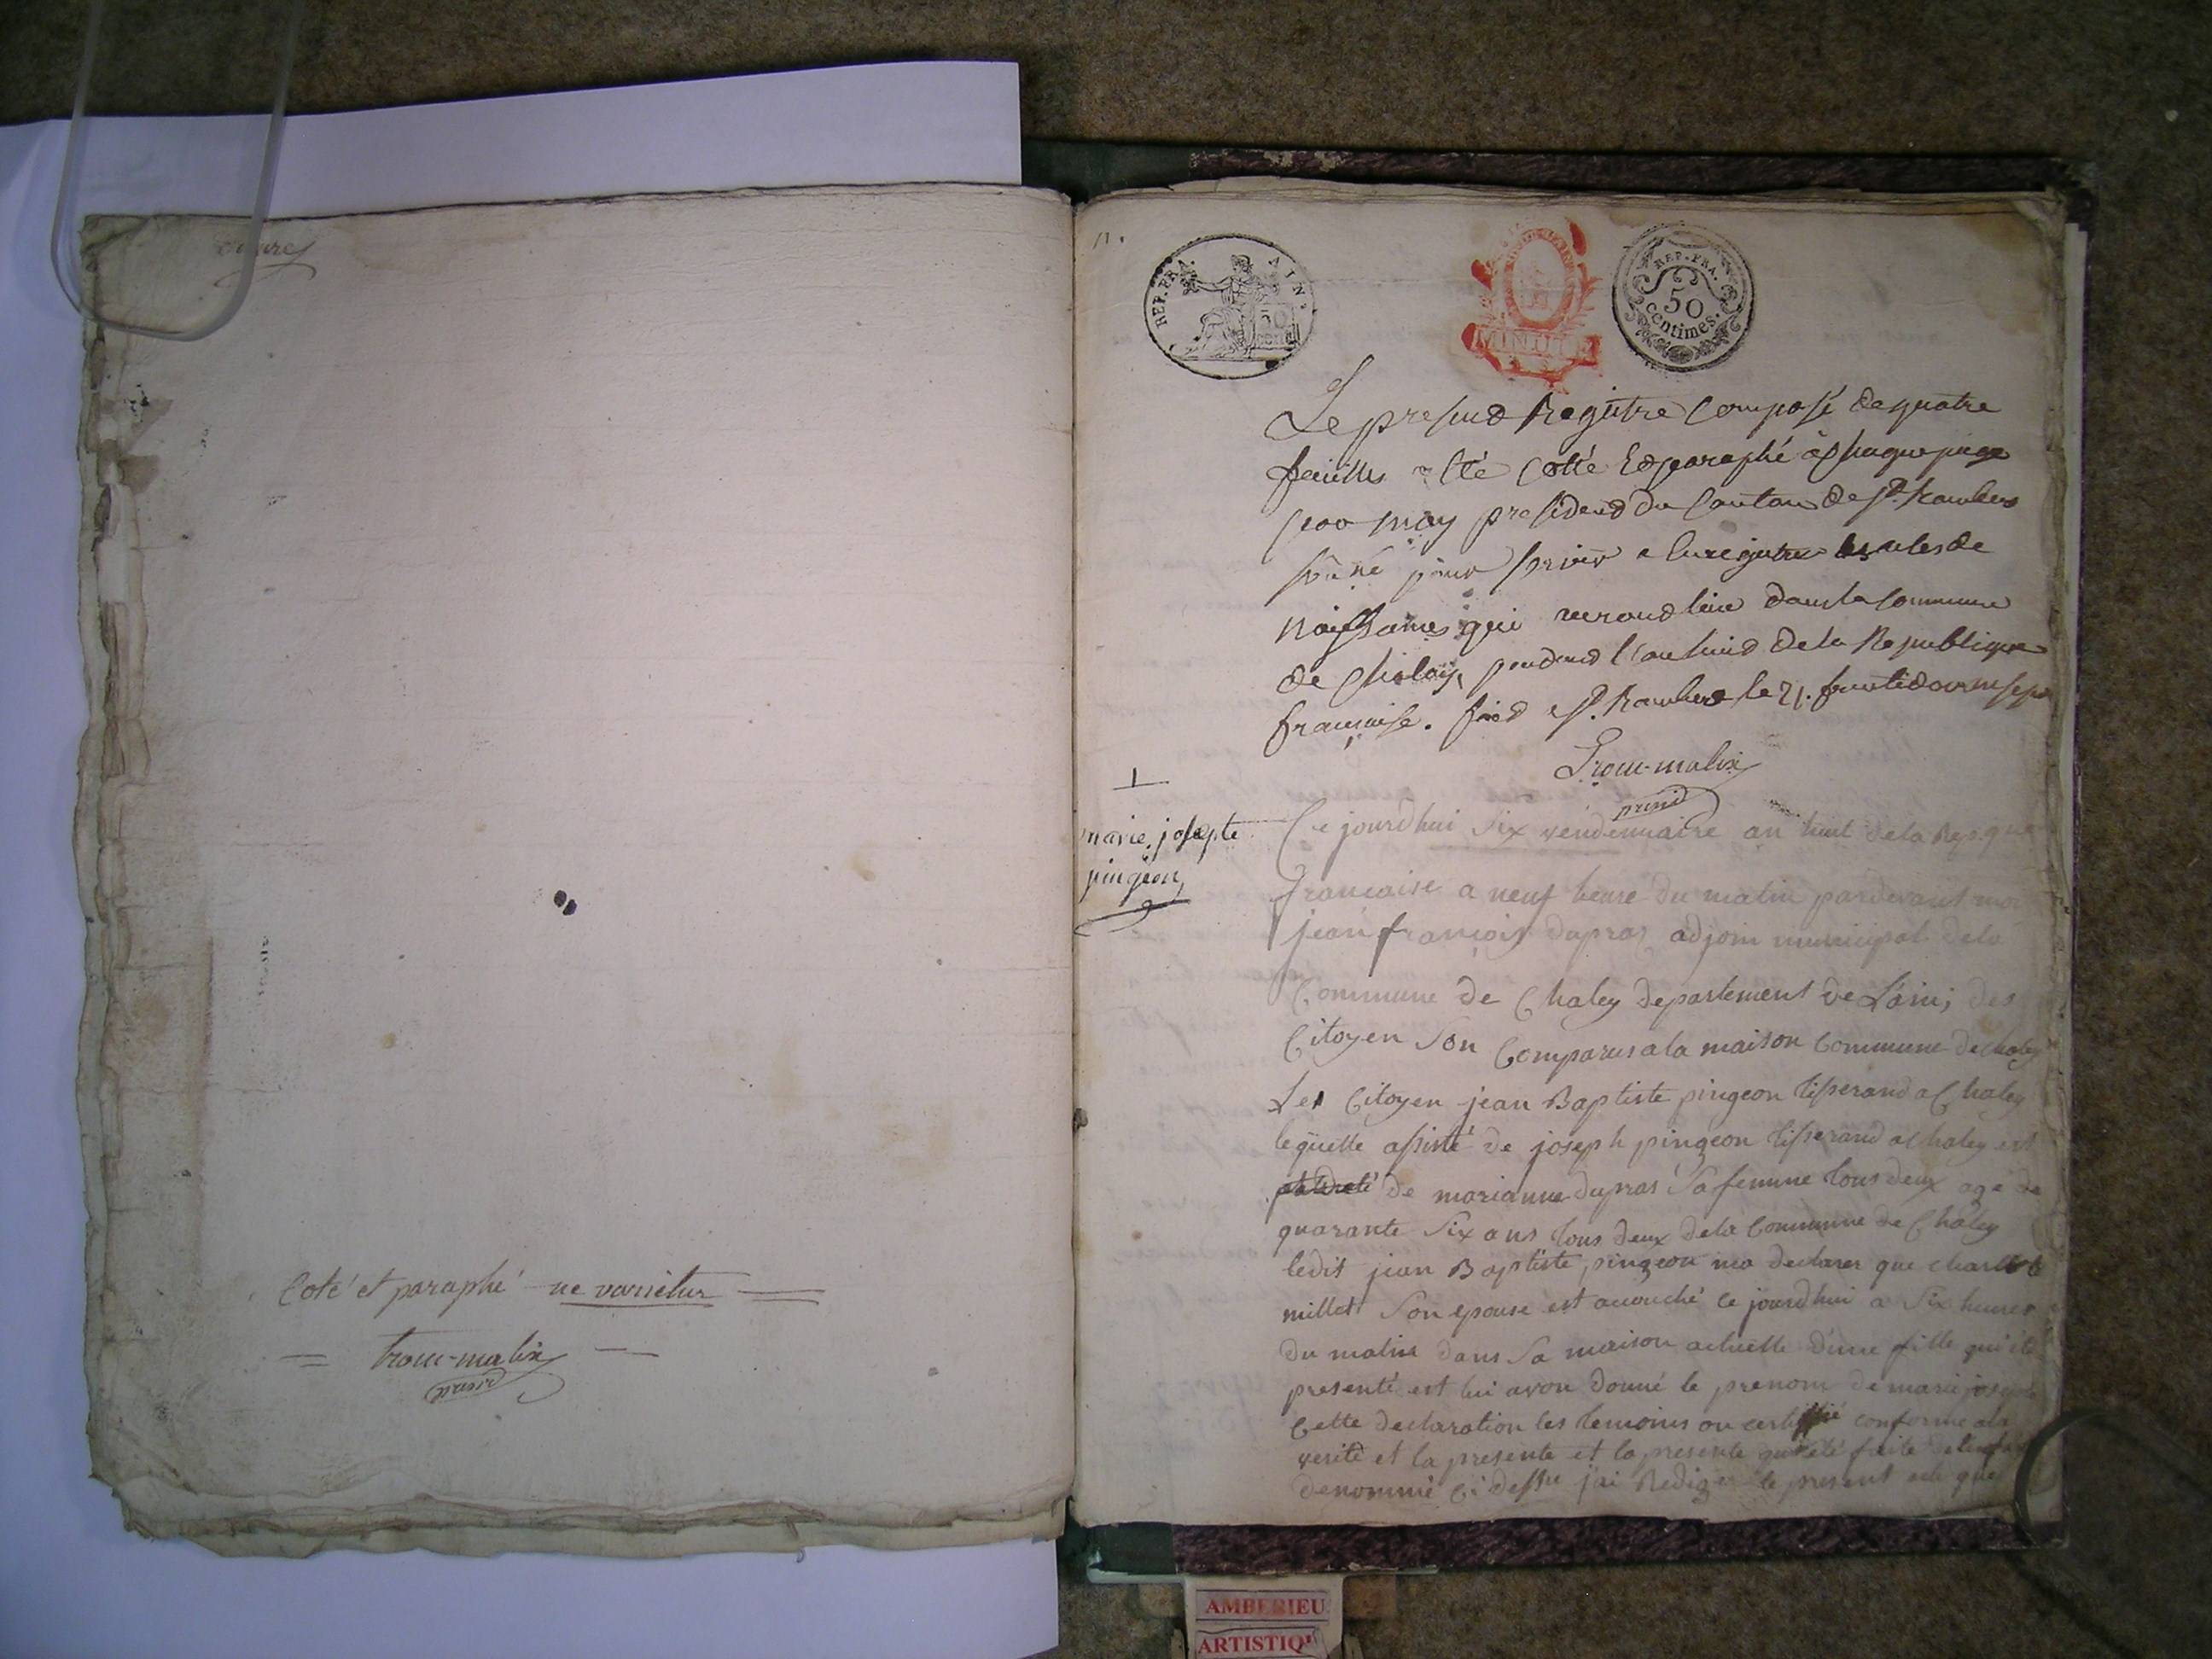 Coté et paraphé ne varietur
troux-malix
presid
REP. FRA. AIN.
50
CENT.
MINUTE
REP. FRA.
50
centimes.
Le present Registre composé de quatre
feuilles a été Cotté et paraphé à chaque page
par moy president du Canton de St. Rambert
pour servir a Enregistrer les actes de
Naissances qui auront lieu dans la Commune
de Chaley, pendant l'an huit de la Republique
francaise. fait a St. Rambert le 21. fructidor an sept
presid
1
marie josepte
pingeon
Ce jourdhui Six vendemiaire an huit de la Rep.que
francaise a neuf heure du matin pardevant moi
jean françois dupras adjoin municipal dela
Commune de Chaley departement de L'ain; des
Citoyen Son Comparus ala maison Commune de chaley
Les Citoyen jean Baptiste pingeon tisserand a Chaley
lequelle assisté de joseph pingeon tisserand a Chaley est
de marianne dupras Sa femme tous deux age de
quarante Six ans tous deux dela Commune de Chaley
ledit jean Baptiste pingeon ma declarer que charlote
millet Son epouse est acouché ce jourdhui a Six heures
du matin dans Sa maison actuelle d'une fille quil
presenté est lui avon donné le prenom de marie josepte
Cette declaration les temoins on certifié conforme ala
verité et la presente et la presente qui été faite de lenfan
denommé Ci dessu jai Rediger le present acte que
AMBERIEU
ARTISTIQU